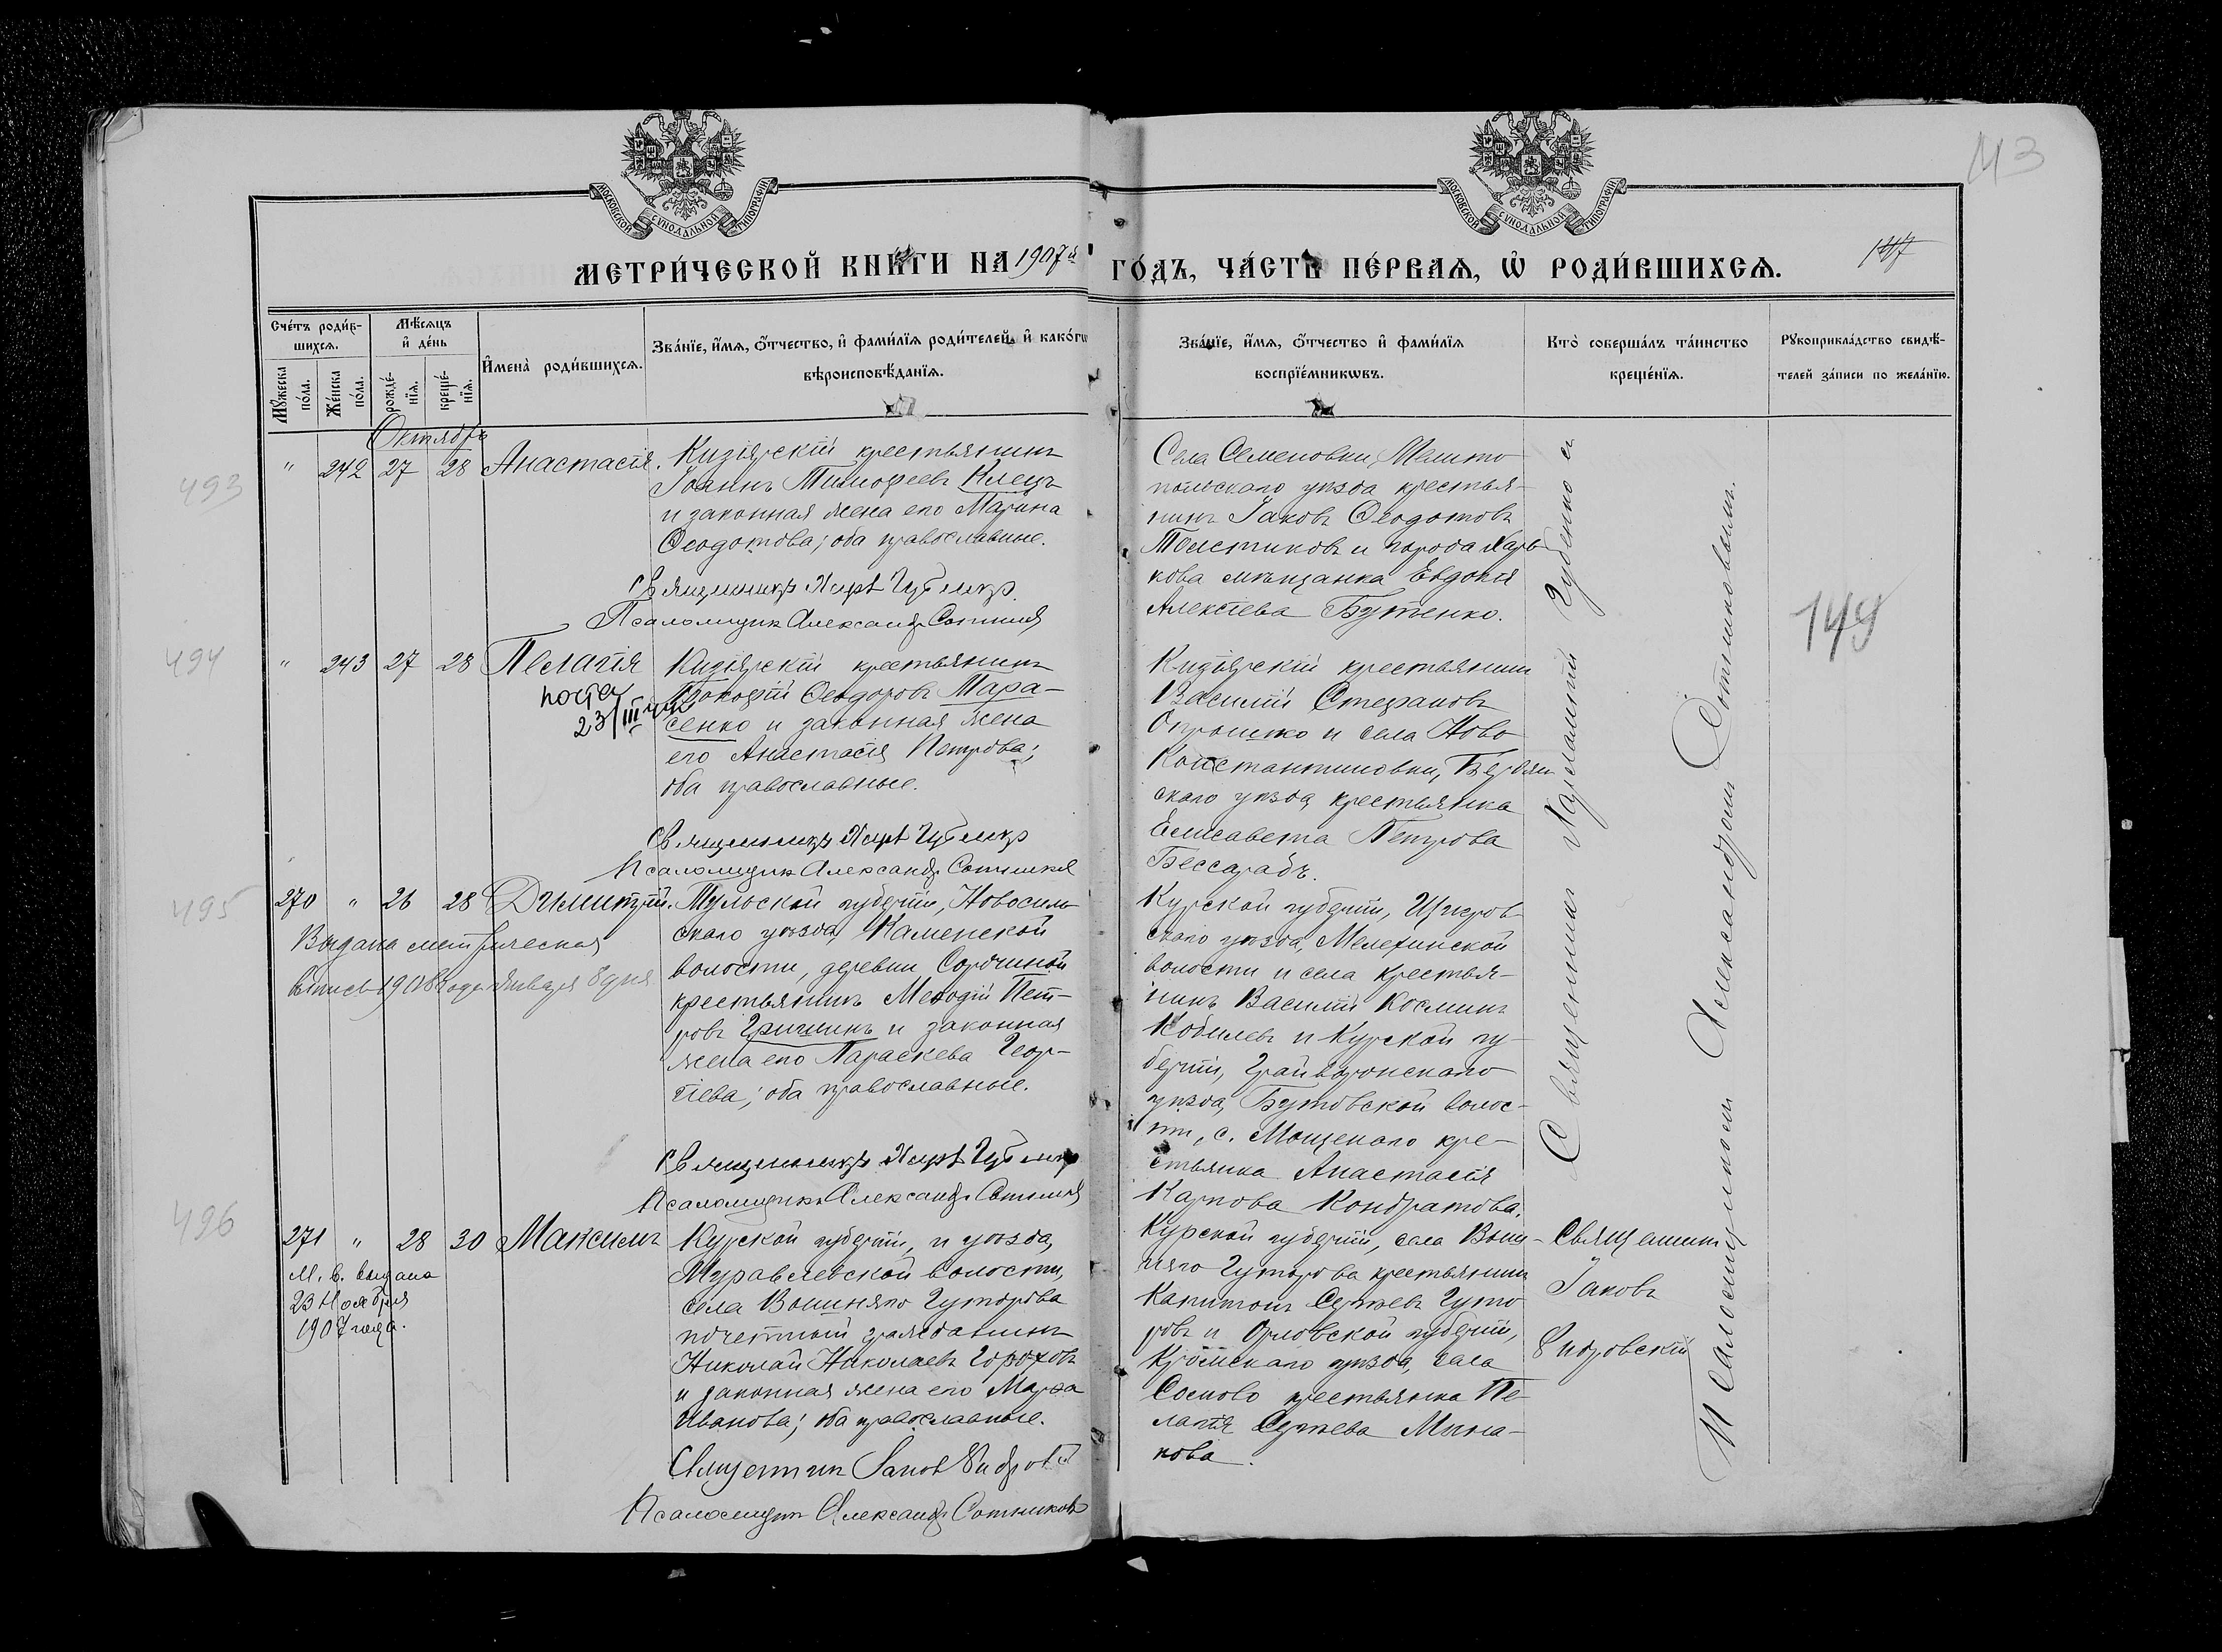 МОСКОВСКОЙ СѴНОДАЛЬНОЙ ТИПОГРАФІИ
МОСКОВСКОЙ СѴНОДАЛЬНОЙ ТИПОГРАФІИ
МЕТРИ́ЧЕСКОЙ КНИ́ГИ НА 1907й ГО́ДЪ, ЧА́СТЬ ПЕ́РВАѦ, Ѡ РОДИ́ВШИХСѦ.
Сче́тъ роди́в-
шихсѧ.
Мꙋжеска по́ла.
Же́нска по́ла.
Мѣ́сѧцъ и де́нь
рожде́-
нїѧ.
креще́-
нїѧ.
Имена̀ роди́вшихсѧ.
Зва́нїе, и́мѧ, о́тчество, и фами́лїѧ роди́телей, и како́гѡ
вѣроисповѣ́данїѧ.
Зва́нїе, и́мѧ, о́тчество и фами́лїѧ
воспрїе́мникѡвъ.
Кто̀ соверша́лъ та́инство
креще́нїѧ.
Рꙋкоприкла́дство свидѣ́-
телей за́писи по жела́нїю.
Октябрь
493
" 242 27 28 Анастасія.
Кизіярскій крестьянинъ
Іоаннъ Тимофеевъ Клецъ
и законная жена его Марина
Ѳеодотова; оба православные.
Священникъ
Псаломщикъ Александръ Сотников
Села Семеновки, Мелито
польскаго уѣзда крестья-
нинъ Іаковъ Ѳеодотовъ
Толстиковъ и города Харь
кова мѣщанка Евдокія
Алексіева Бутенко.
494
" 243 27 28 Пелагія
23/III
Кизіярскій крестьянинъ
Прокофій Ѳеодоровъ Тара-
сенко и законная жена
его Анастасія Петрова;
оба православные.
Священникъ
Псаломщикъ Александръ Сотников
Кизіярскій крестьянинъ
Василій Стефановъ
Опрышко и села Ново
Константиновки, Бердян
скаго уѣзда крестьянка
Елисавета Петрова
Бессарабъ.
495
270 " 26 28 Димитрій.
Выдана метрическая
выпись 1908 года Января 8 дня
Тульской губерніи, Новосиль
скаго уѣзда, Каменской
волости, деревни Сорочиной
крестьянинъ Меѳодій Пет-
ровъ Гришинъ и законная
жена его Параскева Геор-
гіева; оба православные.
Священникъ
Псаломщикъ Александръ Сотников
Курской губерніи, Щигров
скаго уѣзда, Мелехинской
волости и села крестья-
нинъ Василій Космин
Кобилевъ и Курской гу-
берніи, Грайворонскаго
уѣзда, Бутовской волос-
ти, с. Мощенаго кре-
стьянка Анастасія
Карпова Кондратова.
496
271 " 28 30 Максимъ
М. в. выдана
23 Ноября
1907 года.
Курской губерніи, и уѣзда,
Муравлевской волости,
села Вышняго Гуторова
почетный гражданинъ
Николай Николаевъ Гороховъ
и законная жена его Марѳа
Иванова; оба православные.
Священникъ Іаков
Псаломщикъ Александръ Сотников
Курской губерніи, села Выш-
няго Гуторова крестьянинъ
Капитонъ Сергіевъ Гуто
ровъ и Орловской губерніи,
Кромскаго уѣзда, села
Сосково крестьянка Пе-
лагія Сергіева Мина-
кова.
Священникъ Харлампій Губенко и
Священникъ
Іаковъ
Псаломщикомъ Александромъ Сотниковымъ.
149